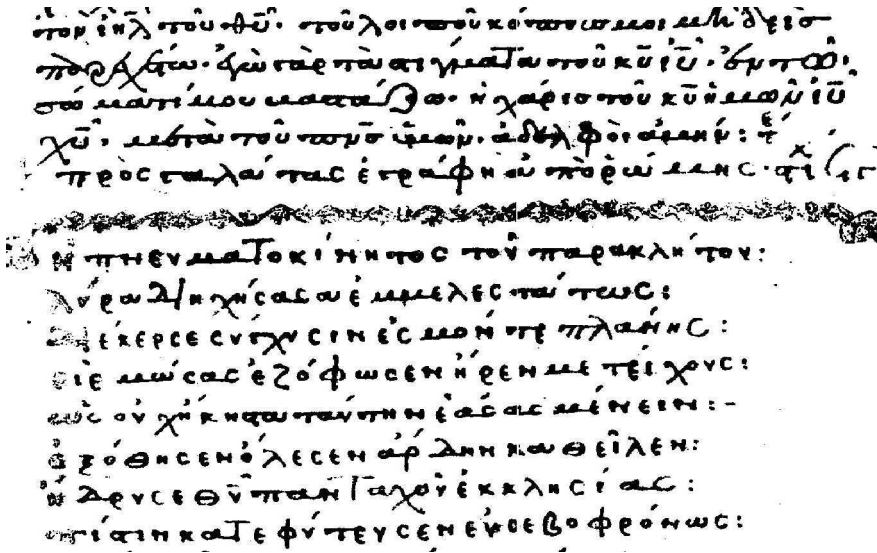 τὸν ἰηλ τοῦ θυ̅· τοῦ λοιποῦ κόπους μοι μηδεὶς
παρεχέτω· ἐγὼ γὰρ τὰ στίγματα τοῦ κυ̅ ιυ̅· ἐν τῷ
σώματί μου βαστάζω· ἡ χάρις τοῦ κυ̅ ἡμῶν ιυ̅
χυ̅· μετὰ τοῦ πνσ ὑμῶν· ἀδελφοὶ ἀμήν:
πρὸς γαλάτας ἐγράφη ἀπὸ ῥώμης·
ἡ πνευματοκίνητος τοῦ παρακλήτου:
λύρα διηχήσασα ἐμμελεστάτως:
σύγχυσιν ἐσμόν τε πλάνης:
ἐζόφωσεν ἦρεν
μένειν:-
ἐξόθησεν ὄλεσεν ἄρδην καθεῖλεν:
ἵδρυσε θυ̅ πανταχοῦ ἐκκλησίας:
πίστιν κατεφύτευσεν εὐσεβοφρόνως: